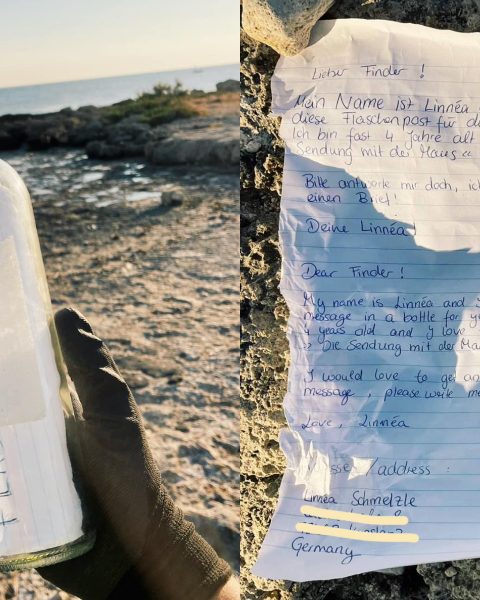 Lieber Finder !
Mein Name ist Linnéa
diese Flaschenpost für
Ich bin fast 4 Jahre alt
Sendung mit der Maus "
Bitte antworte mir doch, ich
einen Brief!
Deine Linnéa
Dear Finder !
My name is Linnéa and I
message in a bottle for
4 years old and I love
" Die Sendung mit der Ma
I would love to get an
message , please write me
Love, Linnéa
/address :
Linnéa Schmelzle
Germany